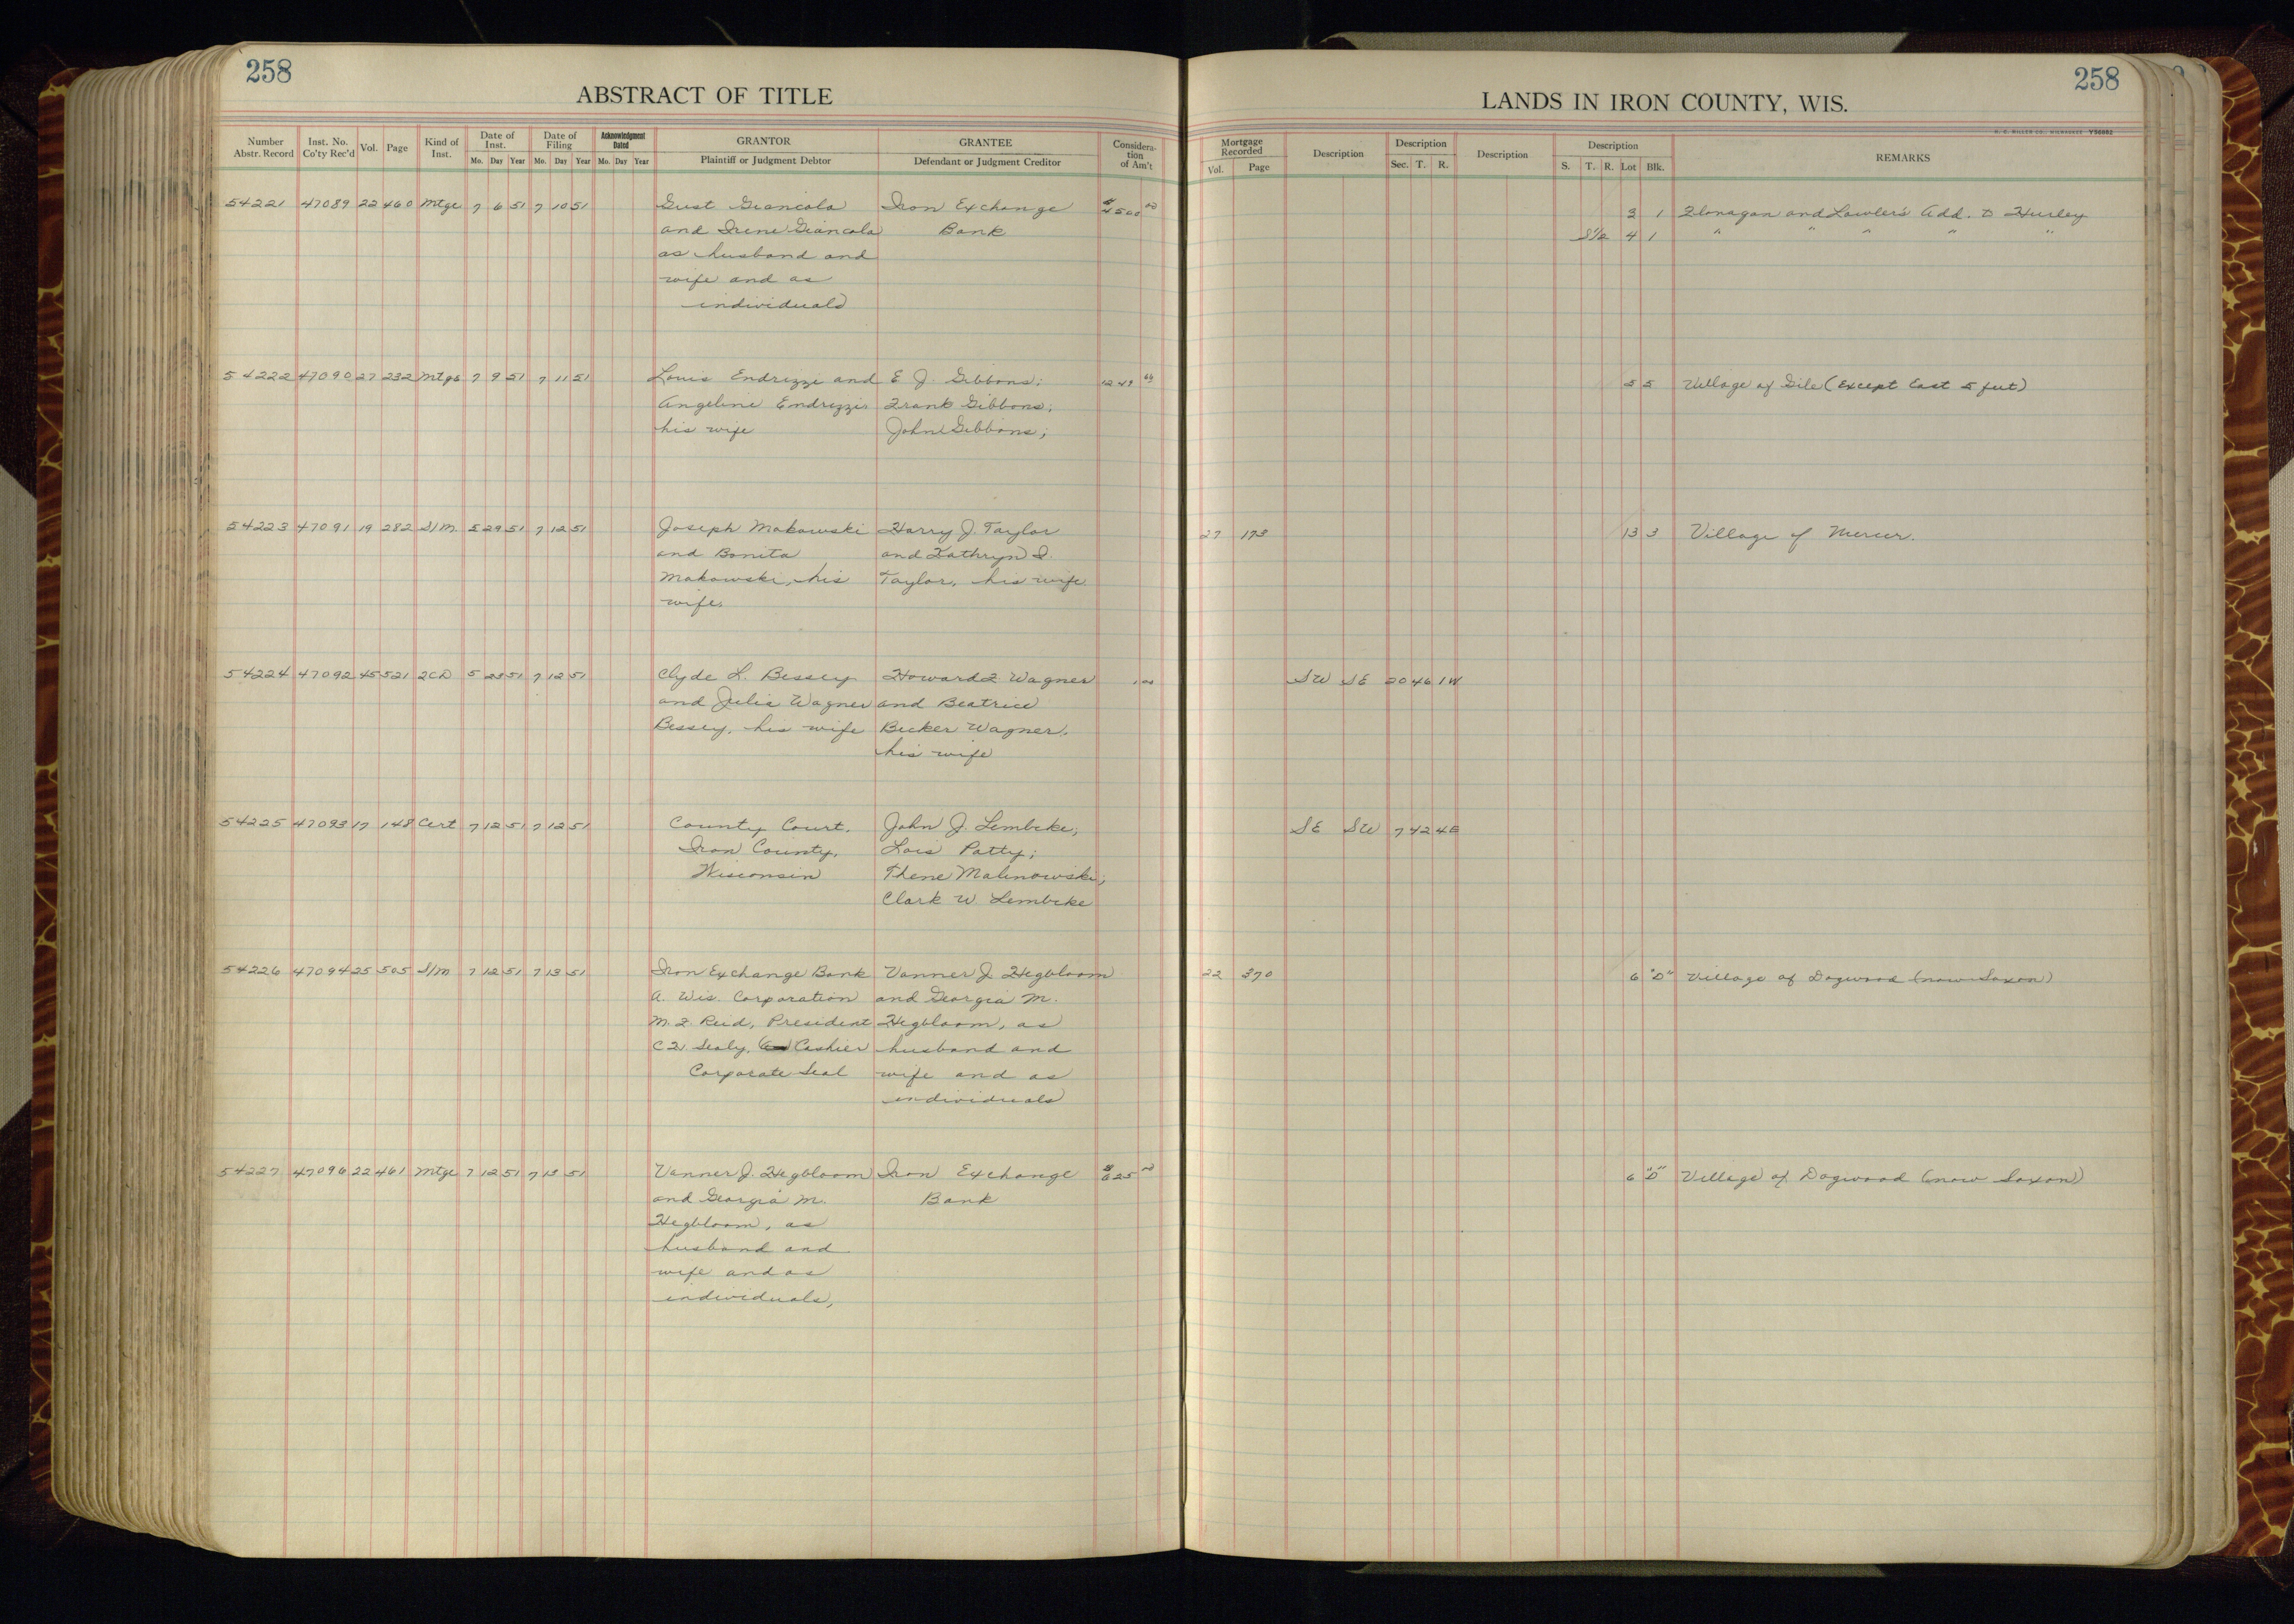 258
ABSTRACT OF TITLE
Number Abstr. Record Inst. No. Co'ty Rec'd Vol. Page Kind of Inst. Date of Inst. Mo. Day Year Date of Filing Mo. Day Year Acknowledgment Dated Mo. Day Year GRANTOR Plaintiff or Judgment Debtor GRANTEE Defendant or Judgment Creditor Considera-tion of Am't
54221 47089 22 460 Mtge 7 6 51 7 10 51 Gust Giancola Iron Exchange $4500 00
and Irene Giancola Bank
as husband and
wife and as
individuals
54222 47090 27 232 Mtge 7 9 51 7 11 51 Louis Endrizzi and E. J. Gibbons;
Angeline Endrizzi Frank Gibbons;
his wife John Gibbons;
54223 47091 19 282 S/M. 5 29 51 7 12 51 Joseph Makowski Harry J. Taylor
and Bonita and Kathryn I.
Makowski, his Taylor, his wife
wife,
54224 47092 45 521 2CD 5 23 51 7 12 51 Clyde L. Bessey Howard F. Wagner 1 00
and Julia Wagner and Beatrice
Bessey, his wife Becker Wagner,
his wife
54225 47093 17 148 Cert 7 12 51 7 12 51 County Court, John J. Lembcke;
Iron County, Lois Patty;
Wisconsin Thene Malinowski;
Clark W. Lembcke
54226 47094 25 505 S/M 7 12 51 7 13 51 Iron Exchange Bank Vanner J. Hegbloom
A. Wis. Corporation and Georgia M.
M. F. Reid, President Hegbloom, as
C F. Sealy, Cashier husband and
Corporate Seal wife and as
individuals
54227 47096 22 461 Mtge 7 12 51 7 13 51 Vanner J. Hegbloom Iron Exchange $625 00
and Georgia M. Bank
Hegbloom, as
husband and
wife and as
individuals,
258
LANDS IN IRON COUNTY, WIS.
H. C. MILLER CO., MILWAUKEE
Mortgage Recorded Vol. Page Description Description Sec. T. R. Description Description S. T. R. Lot Blk. REMARKS
3 1 Flanagan and Lawler's Add. to Hurley
S½ 4 1 " " " " "
5 5 Village of Gile (Except East 5 feet)
27 173 13 3 Village of Mercer.
SW SE 20 46 1W
SE SW 7 42 4E
22 370 6 "D" Village of Dogwood (now Saxon)
6 "D" Village of Dogwood (now Saxon)